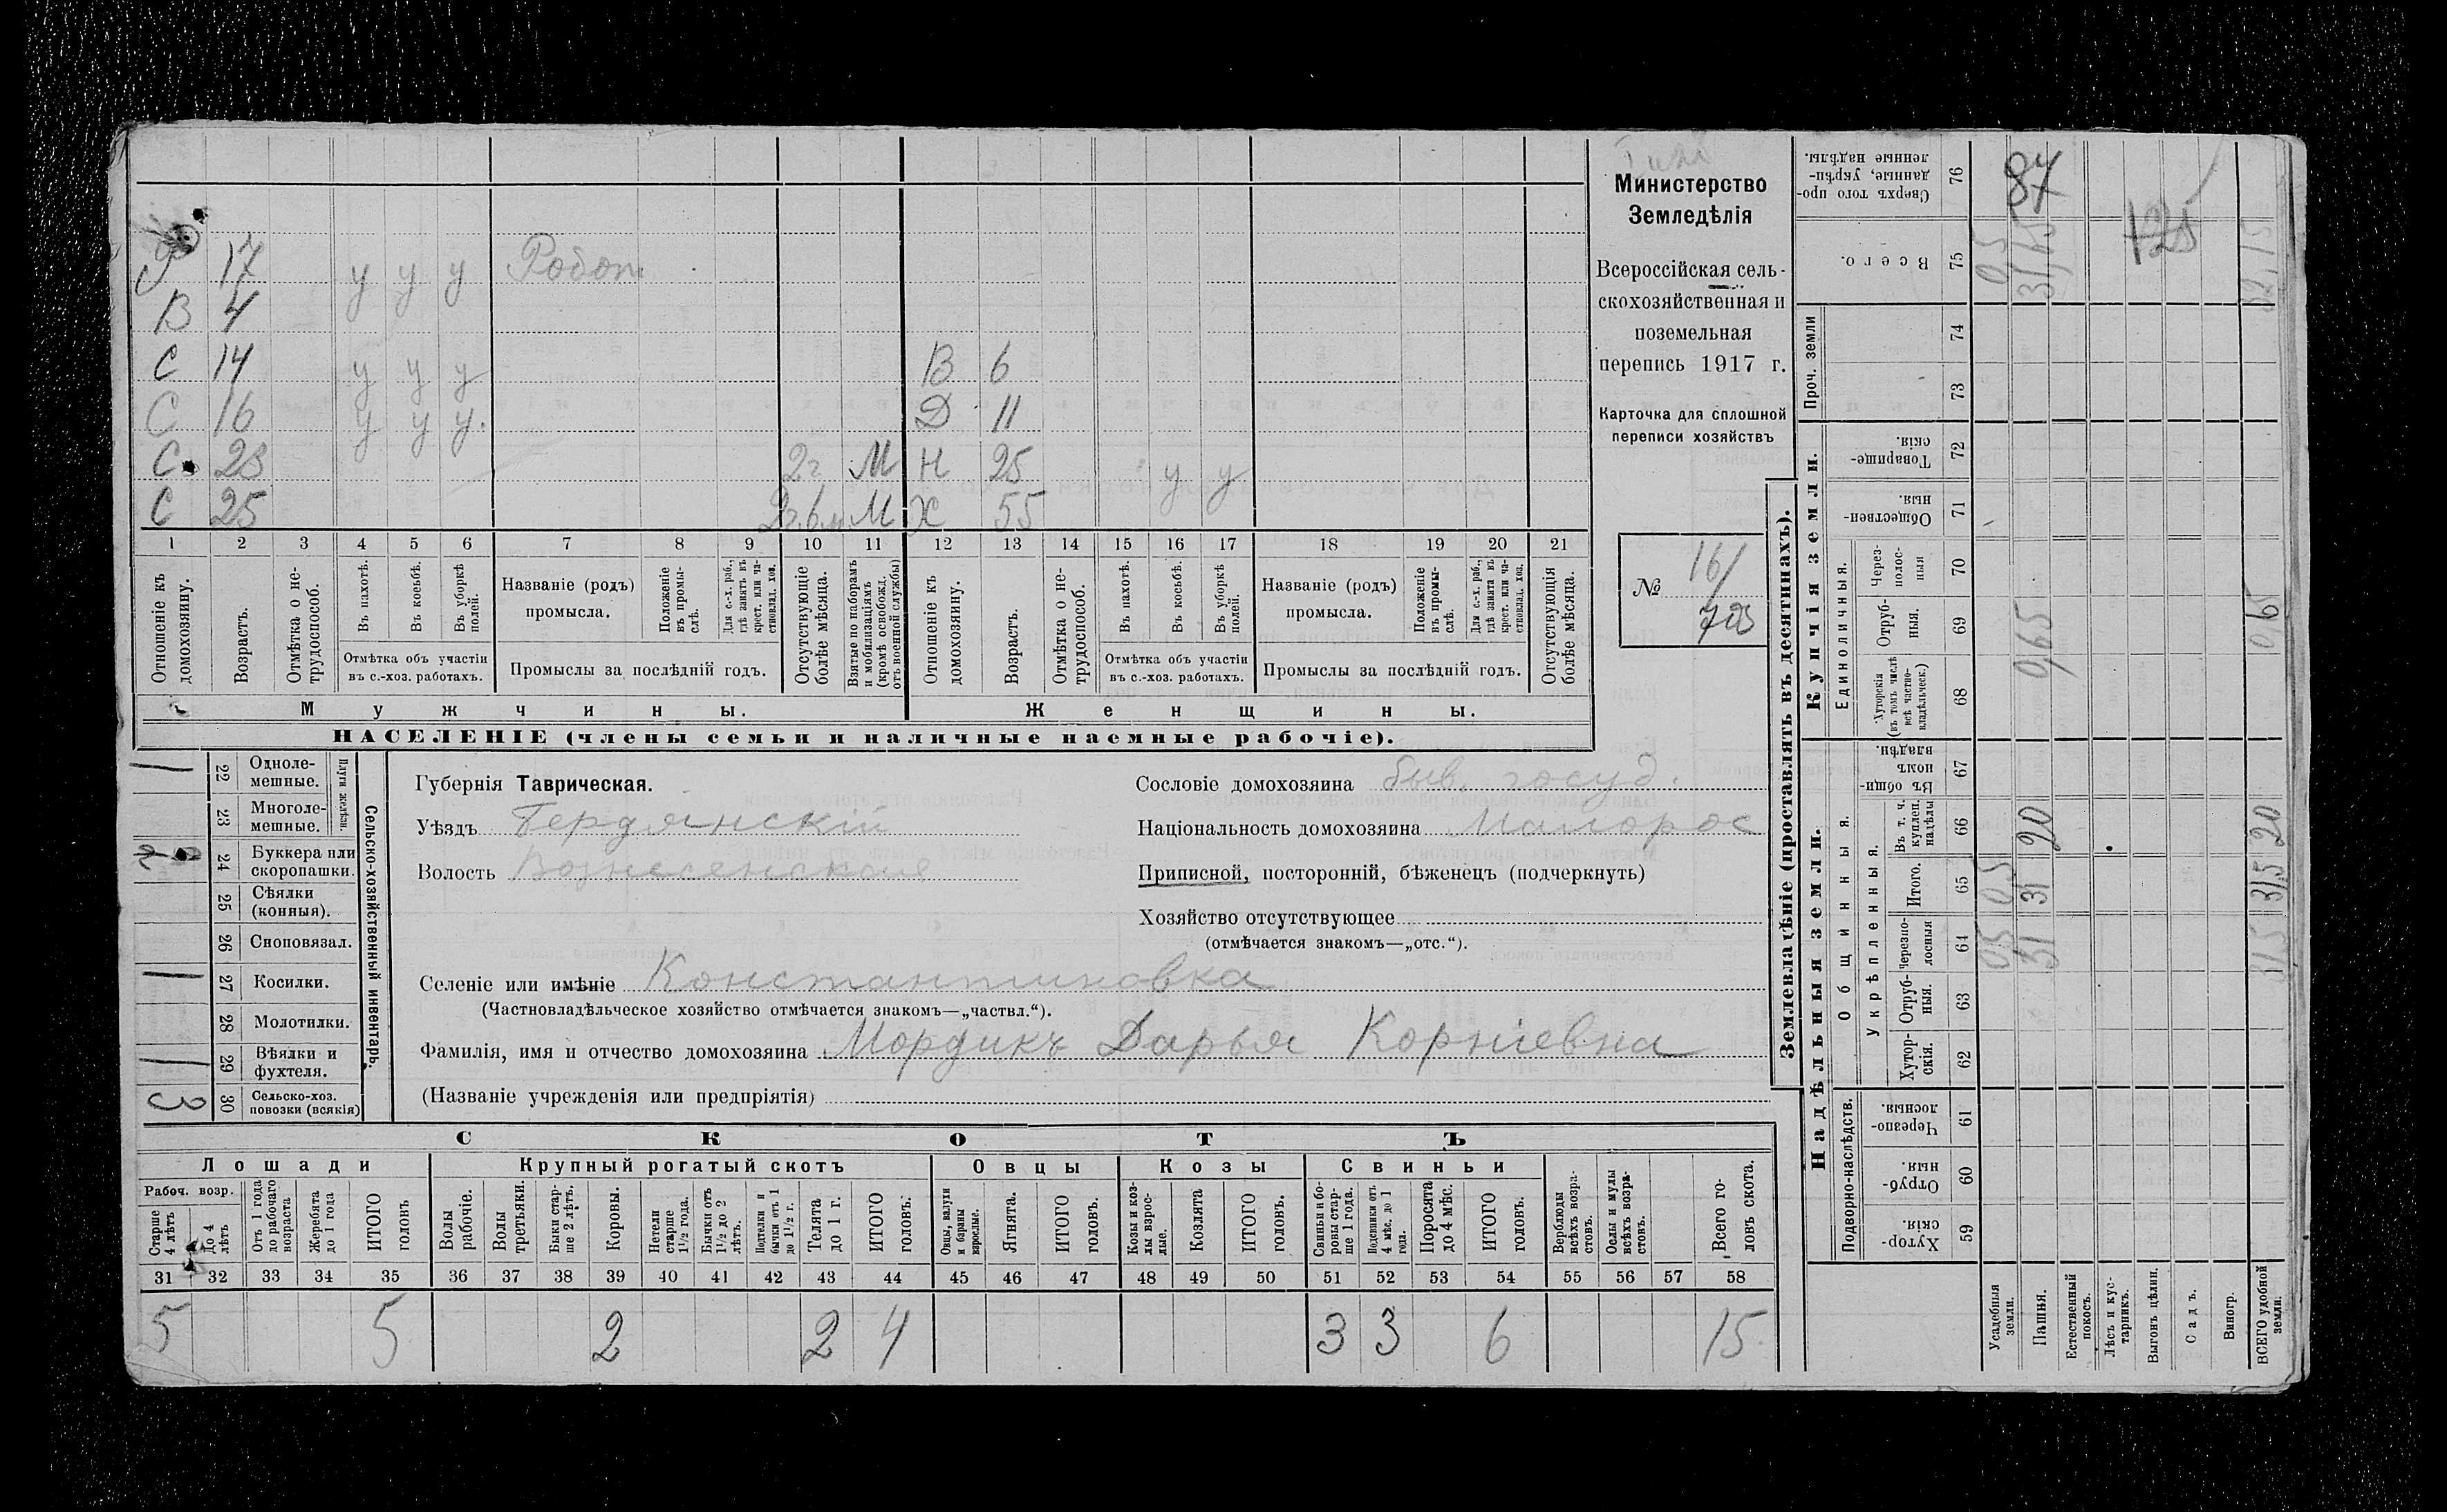 Министерство
Земледѣлія
Всероссійская сель-
скохозяйственная и
поземельная
перепись 1917 г.
Карточка для сплошной
переписи хозяйствъ
№ 161
723
17 у у у Робот
В 4
С 14 у у у В 6
С 16 у у у. Д 11
С 23 2г М Н 25 у у
С 25 2г. 6 м М Х 55
1 2 3 4 5 6 7 8 9 10 11 12 13 14 15 16 17 18 19 20 21
Отношеніе къ домохозяину.
Возрастъ.
Отмѣтка о не-трудоспособ.
Въ пахотѣ.
Въ косьбѣ.
Въ уборкѣ полей.
Отмѣтка объ участіи въ с.-хоз. работахъ.
Названіе (родъ) промысла.
Положеніе въ промы-слѣ.
Для с.-х. раб., гдѣ занятъ въ крест. или ча-стновлад. хоз.
Промыслы за послѣдній годъ.
Отсутствующіе болѣе мѣсяца.
Взятые по наборамъ и мобилизаціямъ (кромѣ освобожд. отъ военной службы)
Отношеніе къ домохозяину.
Возрастъ.
Отмѣтка о не-трудоспособ.
Въ пахотѣ.
Въ косьбѣ.
Въ уборкѣ полей.
Отмѣтка объ участіи въ с.-хоз. работахъ.
Названіе (родъ) промысла.
Положеніе въ промы-слѣ.
Для с.-х. раб., гдѣ занята въ крест. или ча-стновлад. хоз.
Промыслы за послѣдній годъ.
Отсутствующія болѣе мѣсяца.
Мужчины. Женщины.
НАСЕЛЕНІЕ (члены семьи и наличные наемные рабочіе).
Сельско-хозяйственный инвентарь.
Плуги желѣзн.
22 Одноле-мешные.
23 Многоле-мешные.
24 Буккера или скоропашки.
25 Сѣялки (конныя).
26 Сноповязал.
27 Косилки.
28 Молотилки.
29 Вѣялки и фухтеля.
3 30 Сельско-хоз. повозки (всякія)
Губернія Таврическая.
Уѣздъ Бердянскій
Волость Вознесенская
Сословіе домохозяина быв. госуд.
Національность домохозяина Малорос
Приписной, посторонній, бѣженецъ (подчеркнуть)
Хозяйство отсутствующее
(отмѣчается знакомъ—„отс.“).
Селеніе или имѣніе Константиновка
(Частновладѣльческое хозяйство отмѣчается знакомъ—„частвл.“).
Фамилія, имя и отчество домохозяина Мордикъ Дарья Корніевна
(Названіе учрежденія или предпріятія)
СКОТЪ
Лошади Крупный рогатый скотъ Овцы Козы Свиньи
Рабоч. возр.
Старше 4 лѣтъ
До 4 лѣтъ
Отъ 1 года до рабочаго возраста
Жеребята до 1 года
ИТОГО головъ
Волы рабочіе.
Волы третьяки.
Быки стар-ше 2 лѣтъ.
Коровы.
Нетели старше 1½ года.
Бычки отъ 1½ до 2 лѣтъ.
Подтелки и бычки отъ 1 до 1½ г.
Телята до 1 г.
ИТОГО головъ.
Овцы, валухи и бараны взрослые.
Ягнята.
ИТОГО головъ.
Козы и коз-лы взрос-лые.
Козлята
ИТОГО головъ.
Свиньи и бо-ровы стар-ше 1 года.
Подсвинки отъ 4 мѣс. до 1 года.
Поросята до 4 мѣс.
ИТОГО головъ.
Верблюды всѣхъ возра-стовъ.
Ослы и мулы всѣхъ возра-стовъ.
Всего го-ловъ скота.
31 32 33 34 35 36 37 38 39 40 41 42 43 44 45 46 47 48 49 50 51 52 53 54 55 56 57 58
5 5 2 2 4 3 3 6 15
Землевладѣніе (проставлять въ десятинахъ).
Надѣльныя земли.
Купчія земли.
Проч. земли
Подворно-наслѣдств.
Общинныя.
Укрѣпленныя.
Единоличныя.
Сверхъ того про-данные, укрѣп-ленные надѣлы. 76 84
Всего. 75 0,5 31,65 32,15
74
73
Товарище-скія. 72
Обществен-ныя. 71
Через-полос-ныя 70
Отруб-ныя. 69
Хуторскія (въ томъ числѣ всѣ частно-владѣльческ.) 68
0,65 0,65
Въ общин-номъ владѣн. 67
Въ т. ч. куплен. надѣлы 66 20 20
Итого. 65 0,5 31 31,5
Черезпо-лосныя 64 0,5 31 31,5
Отруб-ныя. 63
Хутор-скія. 62
Черезпо-лосныя. 61
Отруб-ныя. 60
Хутор-скія. 59
Усадебныя земли.
Пашня.
Естественный покосъ.
Лѣсъ и кус-тарникъ.
Выгонъ цѣлин.
Садъ.
Виногр.
ВСЕГО удобной земли.